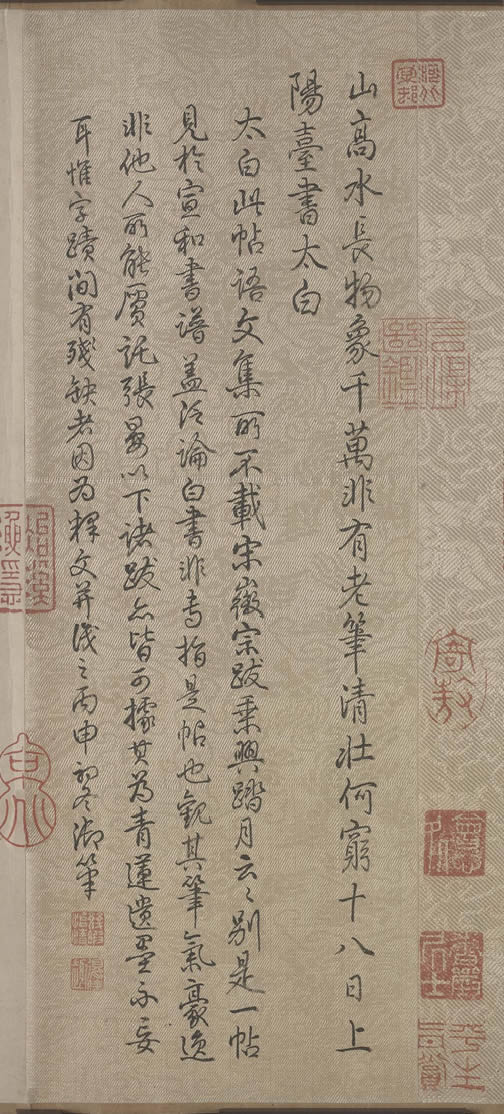 山高水長物象千萬非有老筆清壯何窮十八日上
陽臺書太白
太白此帖語文集所不載宋徽宗跋乗興踏月云〻別是一帖
見於宣和書譜葢泛論白書非専指是帖也觀其筆氣豪逸
非他人所能贗託張晏以下諸跋亦皆可據其為青蓮遺墨不妄
耳惟字蹟間有殘缺者因為釋文并識之丙申初冬御筆